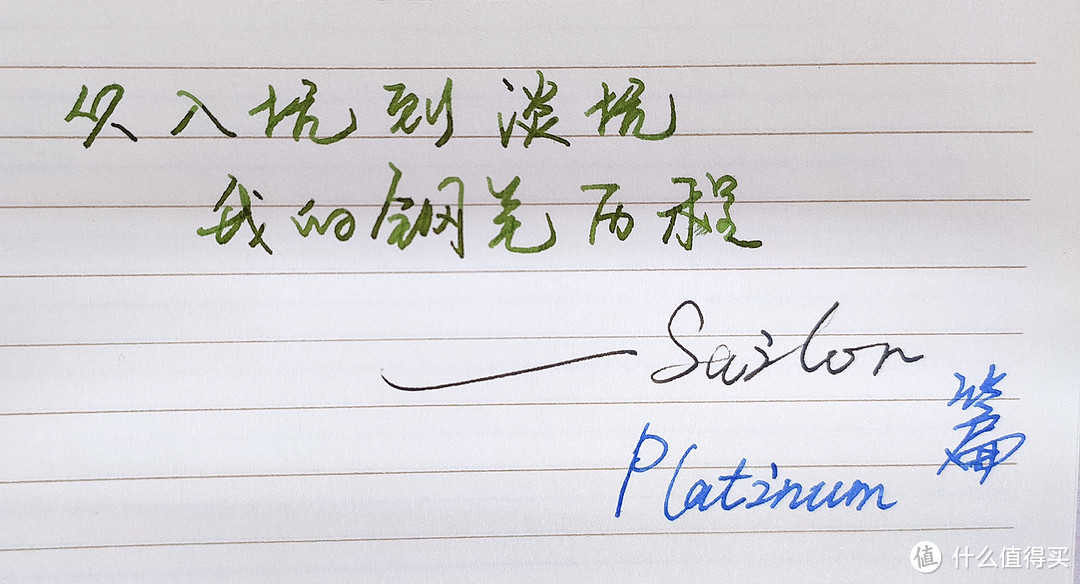 从入坑到淡坑
我的钢笔历程
——Sailor
Platinum 篇
值 什么值得买